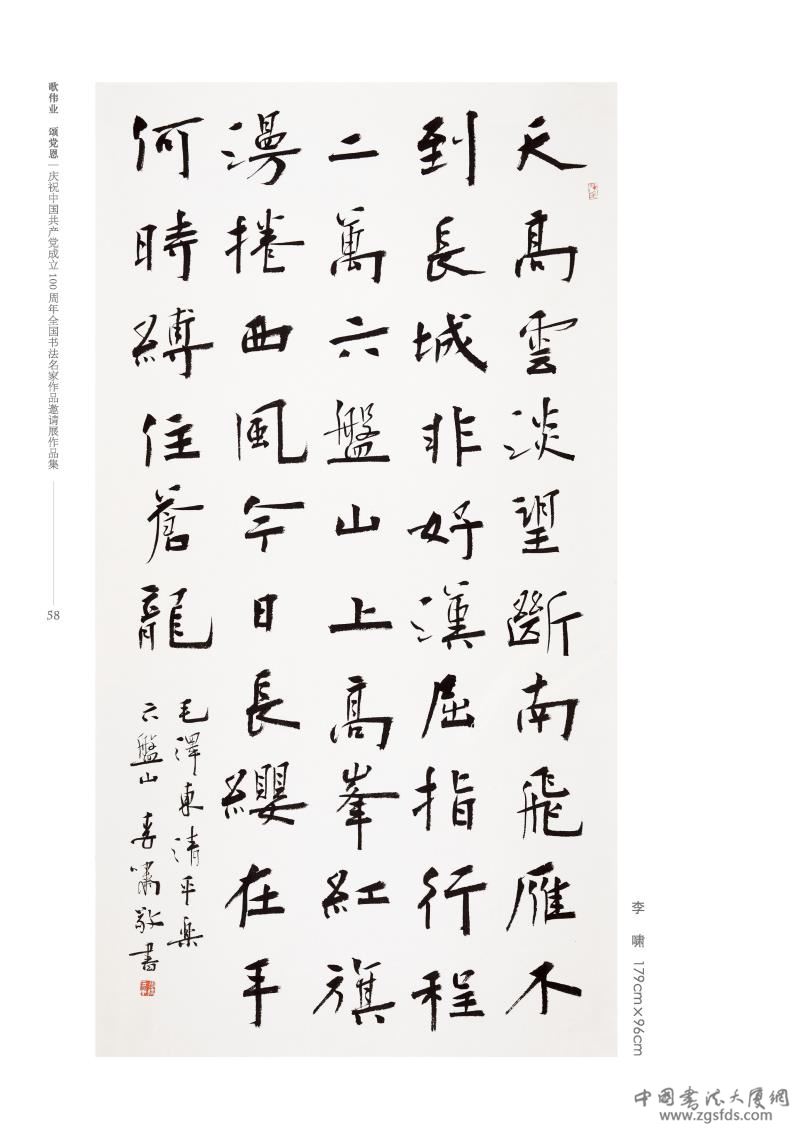 歌伟业 颂党恩|庆祝中国共产党成立100周年全国书法名家作品邀请展作品集
58
天高雲淡望斷南飛雁不
到長城非好漢屈指行程
二萬六盤山上高峯紅旗
漫捲西風今日長纓在手
何時縛住蒼龍
毛澤東清平樂
六盤山 李嘯敬書
李 啸 179cm×96cm
中国书法大厦網
www.zgsfds.com